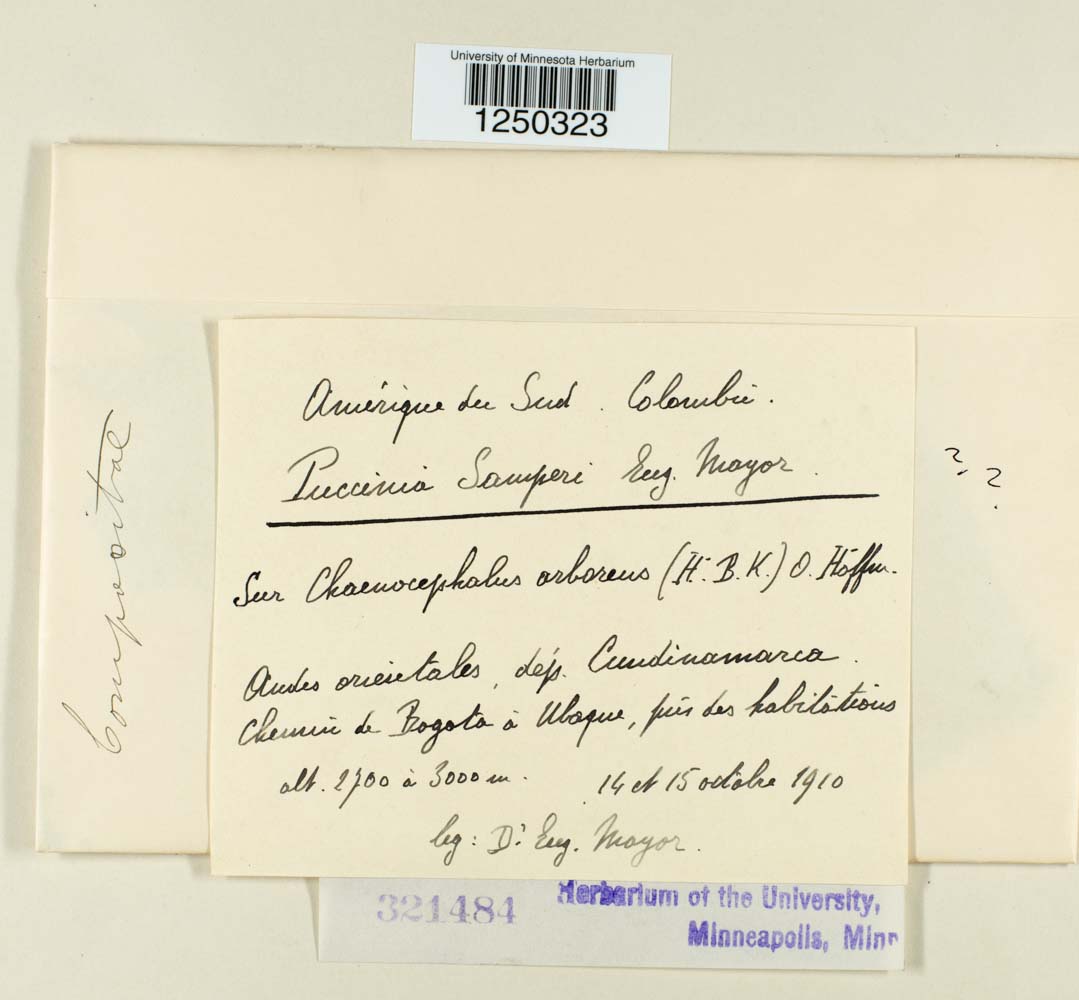 University of Minnesota Herbarium
1250323
Amérique du Sud. Colombie.
Puccinia Samperi Eug. Mayor.
Sur Chaenocephalus arboreus (H.B.K.) O. Hoffm.
Andes orientales, dép. Cundinamarca.
Chemin de Bogota à Ubaque, près des habitations
alt. 2700 à 3000 m. 14 et 15 octobre 1910
leg: Dr. Eug. Mayor.
Compositae
2. 2.
321484
Herbarium of the University,
Minneapolis, Minn